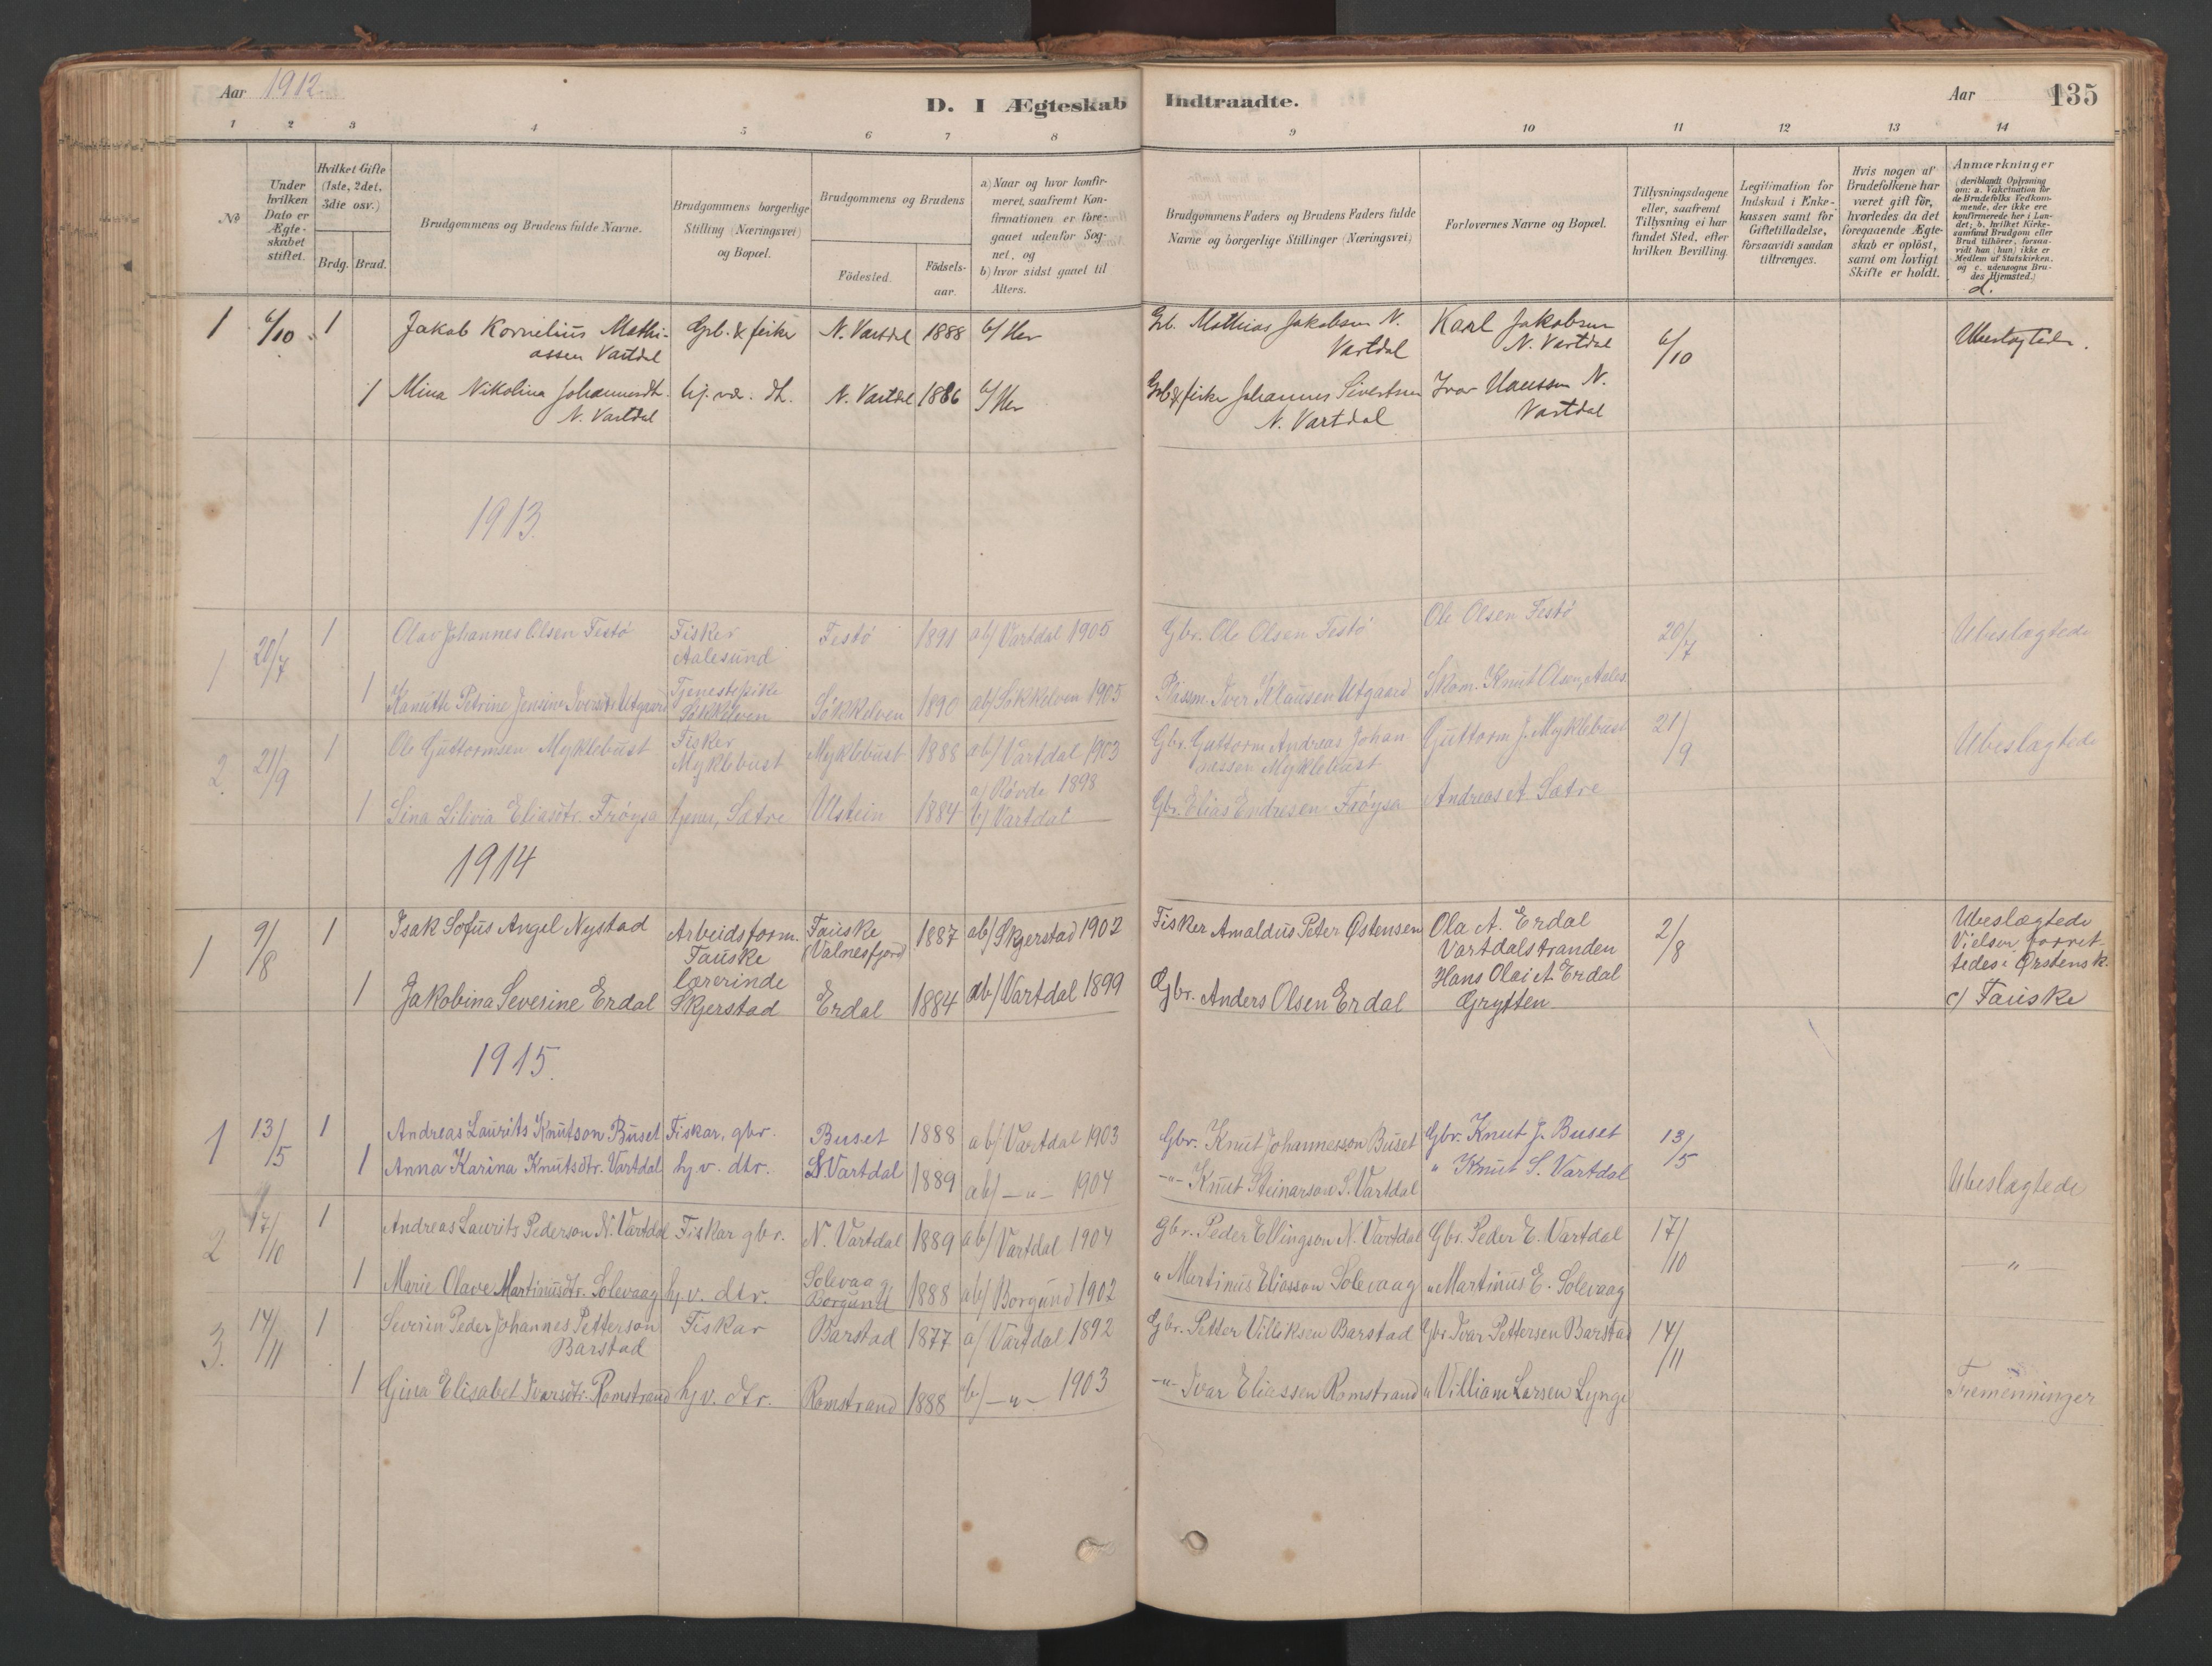 Aar 1912.
D. I Ægteskab Indtraadte.
Aar 135
1 2 3 4 5 6 7 8 9 10 11 12 13 14
No
Under hvilken Dato er Ægteskabet stiftet.
Hvilket Gifte (1ste, 2det, 3die osv.)
Brdg. Brud.
Brudgommens og Brudens fulde Navne.
Brudgommens borgerlige Stilling (Næringsvei) og Bopæl.
Brudgommens og Brudens
Födested.
Födselsaar.
a) Naar og hvor konfirmeret, saafremt Konfirmationen er foregaaet udenfor Sognet, og
b) hvor sidst gaaet til Alters.
Brudgommens Faders og Brudens Faders fulde Navne og borgerlige Stillinger (Næringsvei)
Forlovernes Navne og Bopæl.
Tillysningsdagene eller, saafremt Tillysning ei har fundet Sted, efter hvilken Bevilling.
Legitimation for Indskud i Enkekassen samt for Giftetilladelse, forsaavidt saadan tiltrænges.
Hvis nogen af Brudefolkene har været gift før, hvorledes da det foregaaende Ægteskab er oplöst, samt om lovligt Skifte er holdt.
Anmærkninger (deriblandt Oplysning om: a. Vakcination for de Brudefolks Vedkommende, der ikke ere konfirmerede her i Landet; b. hvilket Kirkesamfund Brudgom eller Brud tilhörer, forsaavidt han (hun) ikke er Medlem af Statskirken, og c. udensogns Brudes Hjemsted.)
d.
1 6/10 1 Jakob Kornelius Mathiassen Vartdal Grb. & fisker N. Vartdal 1888 b/ Her Grb. Mathias Jakobsen N. Vartdal Karl Jakobsen N. Vartdal 6/10 Ubeslægtede.
1 Mina Nikolina Johannesdt. N. Vartdal hj. vær. dt. N. Vartdal 1886 b/ Her Grb & fisker Johannes Sivertsen N. Vartdal Ivar Hanssen N. Vartdal
1913.
1 20/7 1 Olav Johannes Olsen Festö Fisker Aalesund Festö 1891 ab/ Vartdal 1905 Gbr. Ole Olsen Festö Ole Olsen Festö 20/7 Ubeslægtede
1 Kanutte Petrine Jensine Iversdt. Utgaard Tjenestepike Sökkelven Sökkelven 1890 ab/ Sökkelven 1905 Plassm. Iver Klausen Utgaard Skom. Knut Olsen, Aales.
2. 21/9 1 Ole Guttormsen Myklebust Fisker Myklebust Myklebust 1888 ab/ Vartdal 1903 Gbr. Guttorm Andreas Johannessen Myklebust Guttorm J. Myklebust 21/9 Ubeslægtede
1 Sina Lilivia Eliasdtr. Fröysa tjener, Sætre Ulstein 1884 a/ Rövde 1898 b/ Vartdal Gbr. Elias Endresen Fröysa Andreas A. Sætre
1914
1 9/8 1 Isak Sofus Angel Nystad Arbeidsform. Fauske Fauske (Valnesfjord) 1887 ab/ Skjerstad 1902 Fisker Arnaldus Peter Østensen Ola A. Erdal Vartdalstranden 2/8 Ubeslægtede Vielsen forrettedes i Ørstensk. c/ Fauske
1 Jakobina Severine Erdal lærerinde Skjerstad Erdal 1884 ab/ Vartdal 1899 Gbr. Anders Olsen Erdal Hans Olai A. Erdal Grytten
1915.
1 13/5 1 Andreas Laurits Knutson Buset Fiskar, gbr. Buset 1888 ab/ Vartdal 1903 Gbr. Knut Johannesson Buset Gbr. Knut J. Buset 13/5
1 Anna Karina Knutsdtr. Vartdal hj. v. dtr. S. Vartdal 1889 ab/ —"— 1904 —"— Knut Steinarson S. Vartdal " Knut S. Vartdal Ubeslagtede
2 17/10 1 Andreas Laurits Pederson N. Vartdal Fiskar gbr. N. Vartdal 1889 ab/ Vartdal 1904 Gbr. Peder Ellingson N. Vartdal Gbr. Peder E. Vartdal 17/10 —"—
1 Marie Olave Martinusdtr. Solevaag hj. v. dtr. Solevaag Borgund 1888 ab/ Borgund 1902 " Martinus Eliasson Solevaag " Martinus E. Solevaag
3. 14/11 1 Severin Peder Johannes Petterson Barstad Fiskar Barstad 1877 a/ Vartdal 1892 Gbr. Petter Villiksen Barstad Gbr Ivar Pettersen Barstad 14/11
1 Gina Elisabet Ivarsdtr. Romstrand hj v. dtr. Romstrand 1888 b/ —"— 1903 —"— Ivar Eliassen Romstrand " Villiam Larsen Lynge Tremenninger